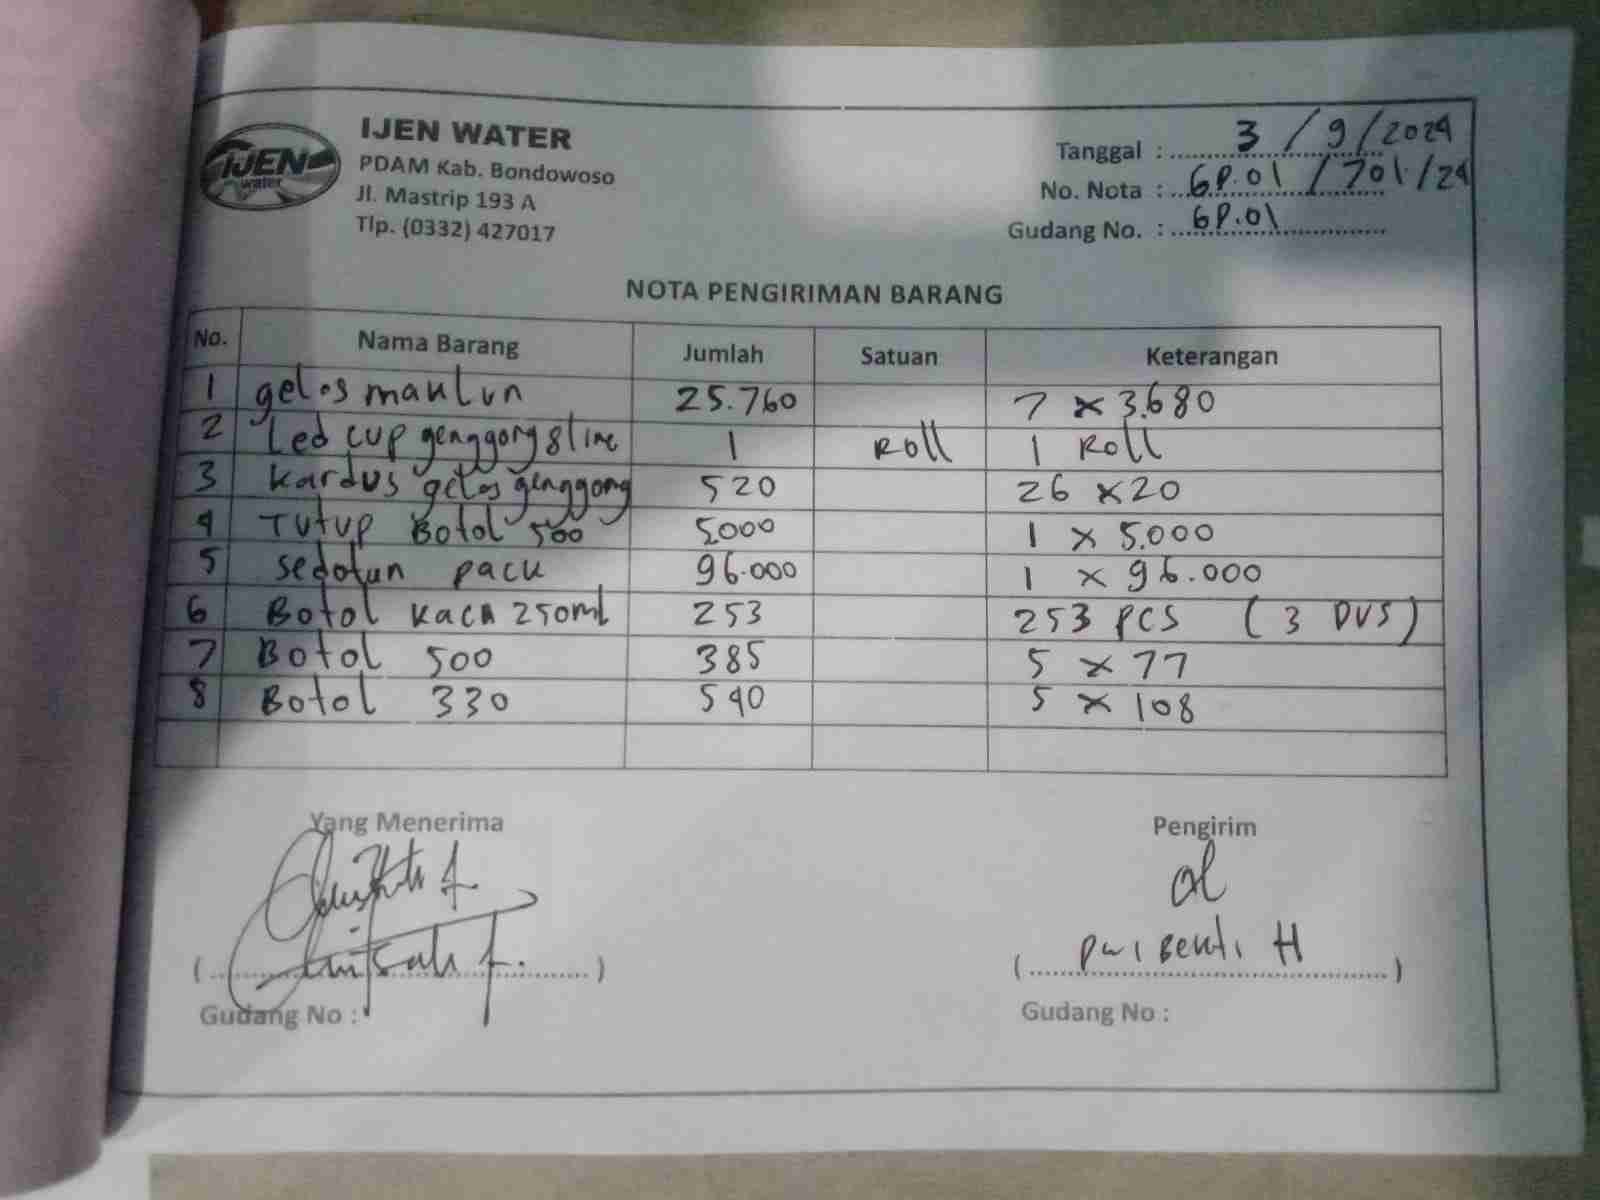 IJEN
water
IJEN WATER
PDAM Kab. Bondowoso
Jl. Mastrip 193 A
Tlp. (0332) 427017
Tanggal : 3 / 9 / 2024
No. Nota : GP.01 / 701 / 24
Gudang No. : GP.01
NOTA PENGIRIMAN BARANG
No. Nama Barang Jumlah Satuan Keterangan
1 gelas maulun 25.760 7 x 3.680
2 Led cup genggong 8 line 1 Roll 1 Roll
3 kardus gelas genggong 520 26 x 20
4 Tutup Botol 500 5000 1 x 5.000
5 sedotan pack 96.000 1 x 96.000
6 Botol kaca 250ml 253 253 PCS ( 3 DUS )
7 Botol 500 385 5 x 77
8 Botol 330 540 5 x 108
Yang Menerima Pengirim
H
Gudang No : Gudang No :